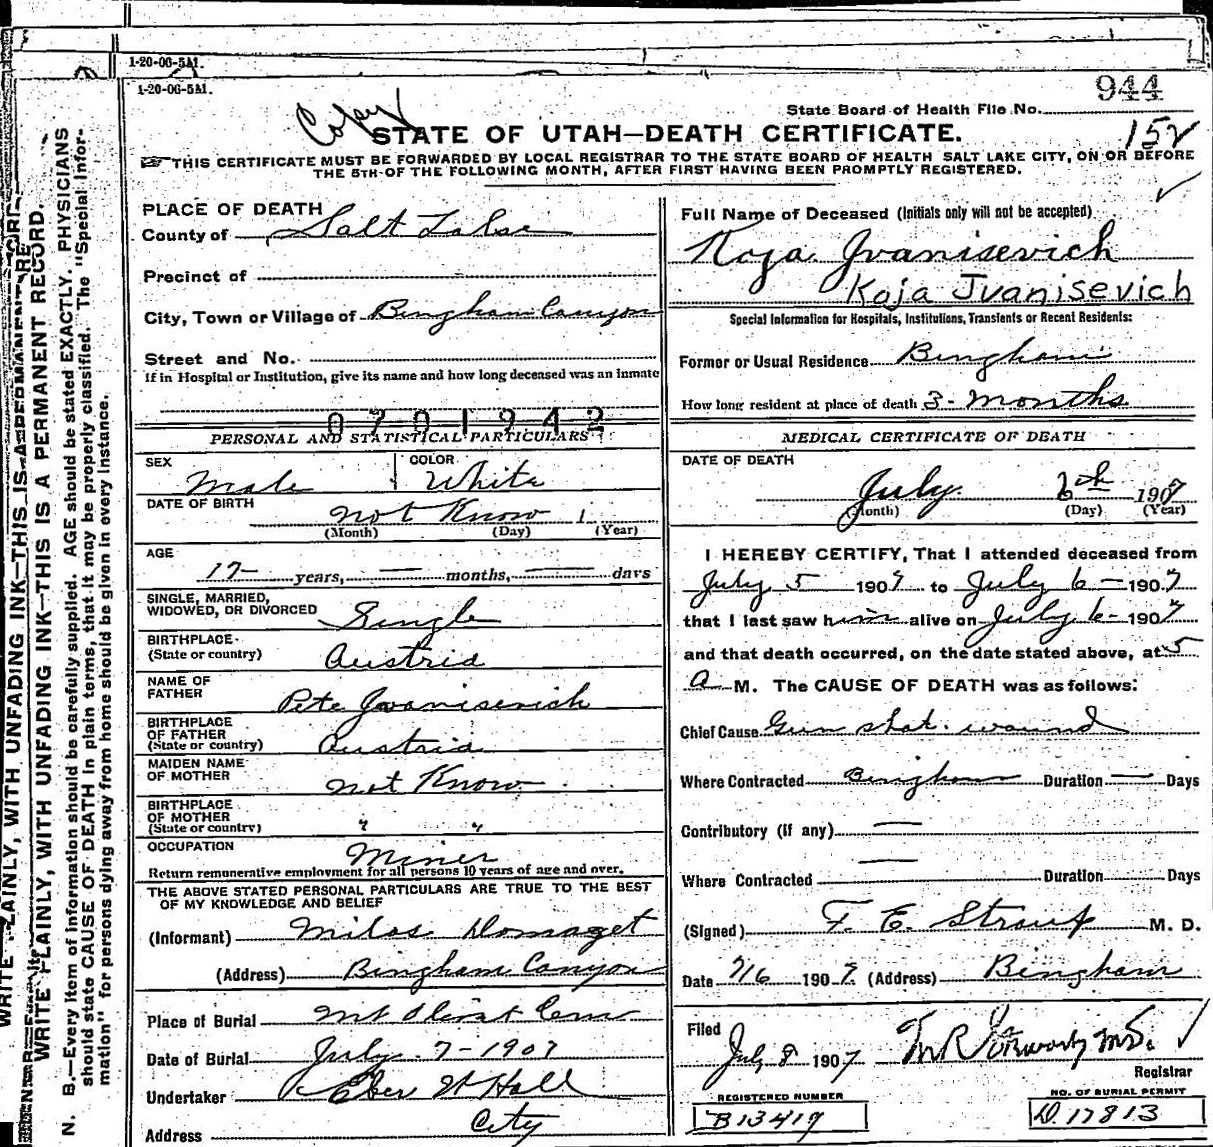 1-20-06-5M.
1-20-06-5M.
944
State Board of Health File No.
Copy
STATE OF UTAH—DEATH CERTIFICATE.
152
THIS CERTIFICATE MUST BE FORWARDED BY LOCAL REGISTRAR TO THE STATE BOARD OF HEALTH SALT LAKE CITY, ON OR BEFORE
THE 5TH OF THE FOLLOWING MONTH, AFTER FIRST HAVING BEEN PROMPTLY REGISTERED.
PLACE OF DEATH
County of Salt Lake
Precinct of
City, Town or Village of Bingham Canyon
Street and No.
If in Hospital or Institution, give its name and how long deceased was an inmate
0701942
PERSONAL AND STATISTICAL PARTICULARS
SEX Male COLOR White
DATE OF BIRTH not Know 1
(Month) (Day) (Year)
AGE
17 years, — months, — days
SINGLE, MARRIED,
WIDOWED, OR DIVORCED Single
BIRTHPLACE
(State or country) Austria
NAME OF
FATHER Pete Ivanisevich
BIRTHPLACE
OF FATHER
(State or country) Austria
MAIDEN NAME
OF MOTHER not Know
BIRTHPLACE
OF MOTHER
(State or country) " "
OCCUPATION Miner
Return remunerative employment for all persons 10 years of age and over.
THE ABOVE STATED PERSONAL PARTICULARS ARE TRUE TO THE BEST
OF MY KNOWLEDGE AND BELIEF
(Informant) Milos Domaget
(Address) Bingham Canyon
Place of Burial Mt Olivet Cem
Date of Burial July 7-1907
Undertaker Eber W Hall
Address City
Full Name of Deceased (Initials only will not be accepted)
Koja Ivanisevich
Koja Ivanisevich
Special Information for Hospitals, Institutions, Transients or Recent Residents:
Former or Usual Residence Bingham
How long resident at place of death 3- months
MEDICAL CERTIFICATE OF DEATH
DATE OF DEATH
July 6th 1907
(Month) (Day) (Year)
I HEREBY CERTIFY, That I attended deceased from
July 5 1907 to July 6 — 1907
that I last saw him alive on July 6 - 1907
and that death occurred, on the date stated above, at 5
a M. The CAUSE OF DEATH was as follows:
Chief Cause Gun shot wound
Where Contracted Bingham Duration — Days
Contributory (if any) —
—
Where Contracted Duration Days
(Signed) F. E. Straup M. D.
Date 7/6 1907. (Address) Bingham
Filed
July 8 1907
Registrar
REGISTERED NUMBER
B13419
NO. OF BURIAL PERMIT
D. 17813
WRITE PLAINLY, WITH UNFADING INK—THIS IS A PERMANENT RECORD.
N. B.—Every item of information should be carefully supplied. AGE should be stated EXACTLY. PHYSICIANS
should state CAUSE OF DEATH in plain terms, that it may be properly classified. The "Special Infor-
mation" for persons dying away from home should be given in every instance.